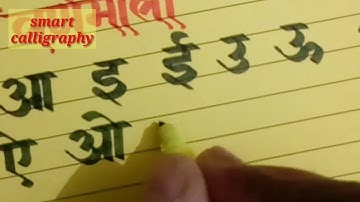 smart
calligraphy
आ इ ई उ ऊ
ऐ ओ